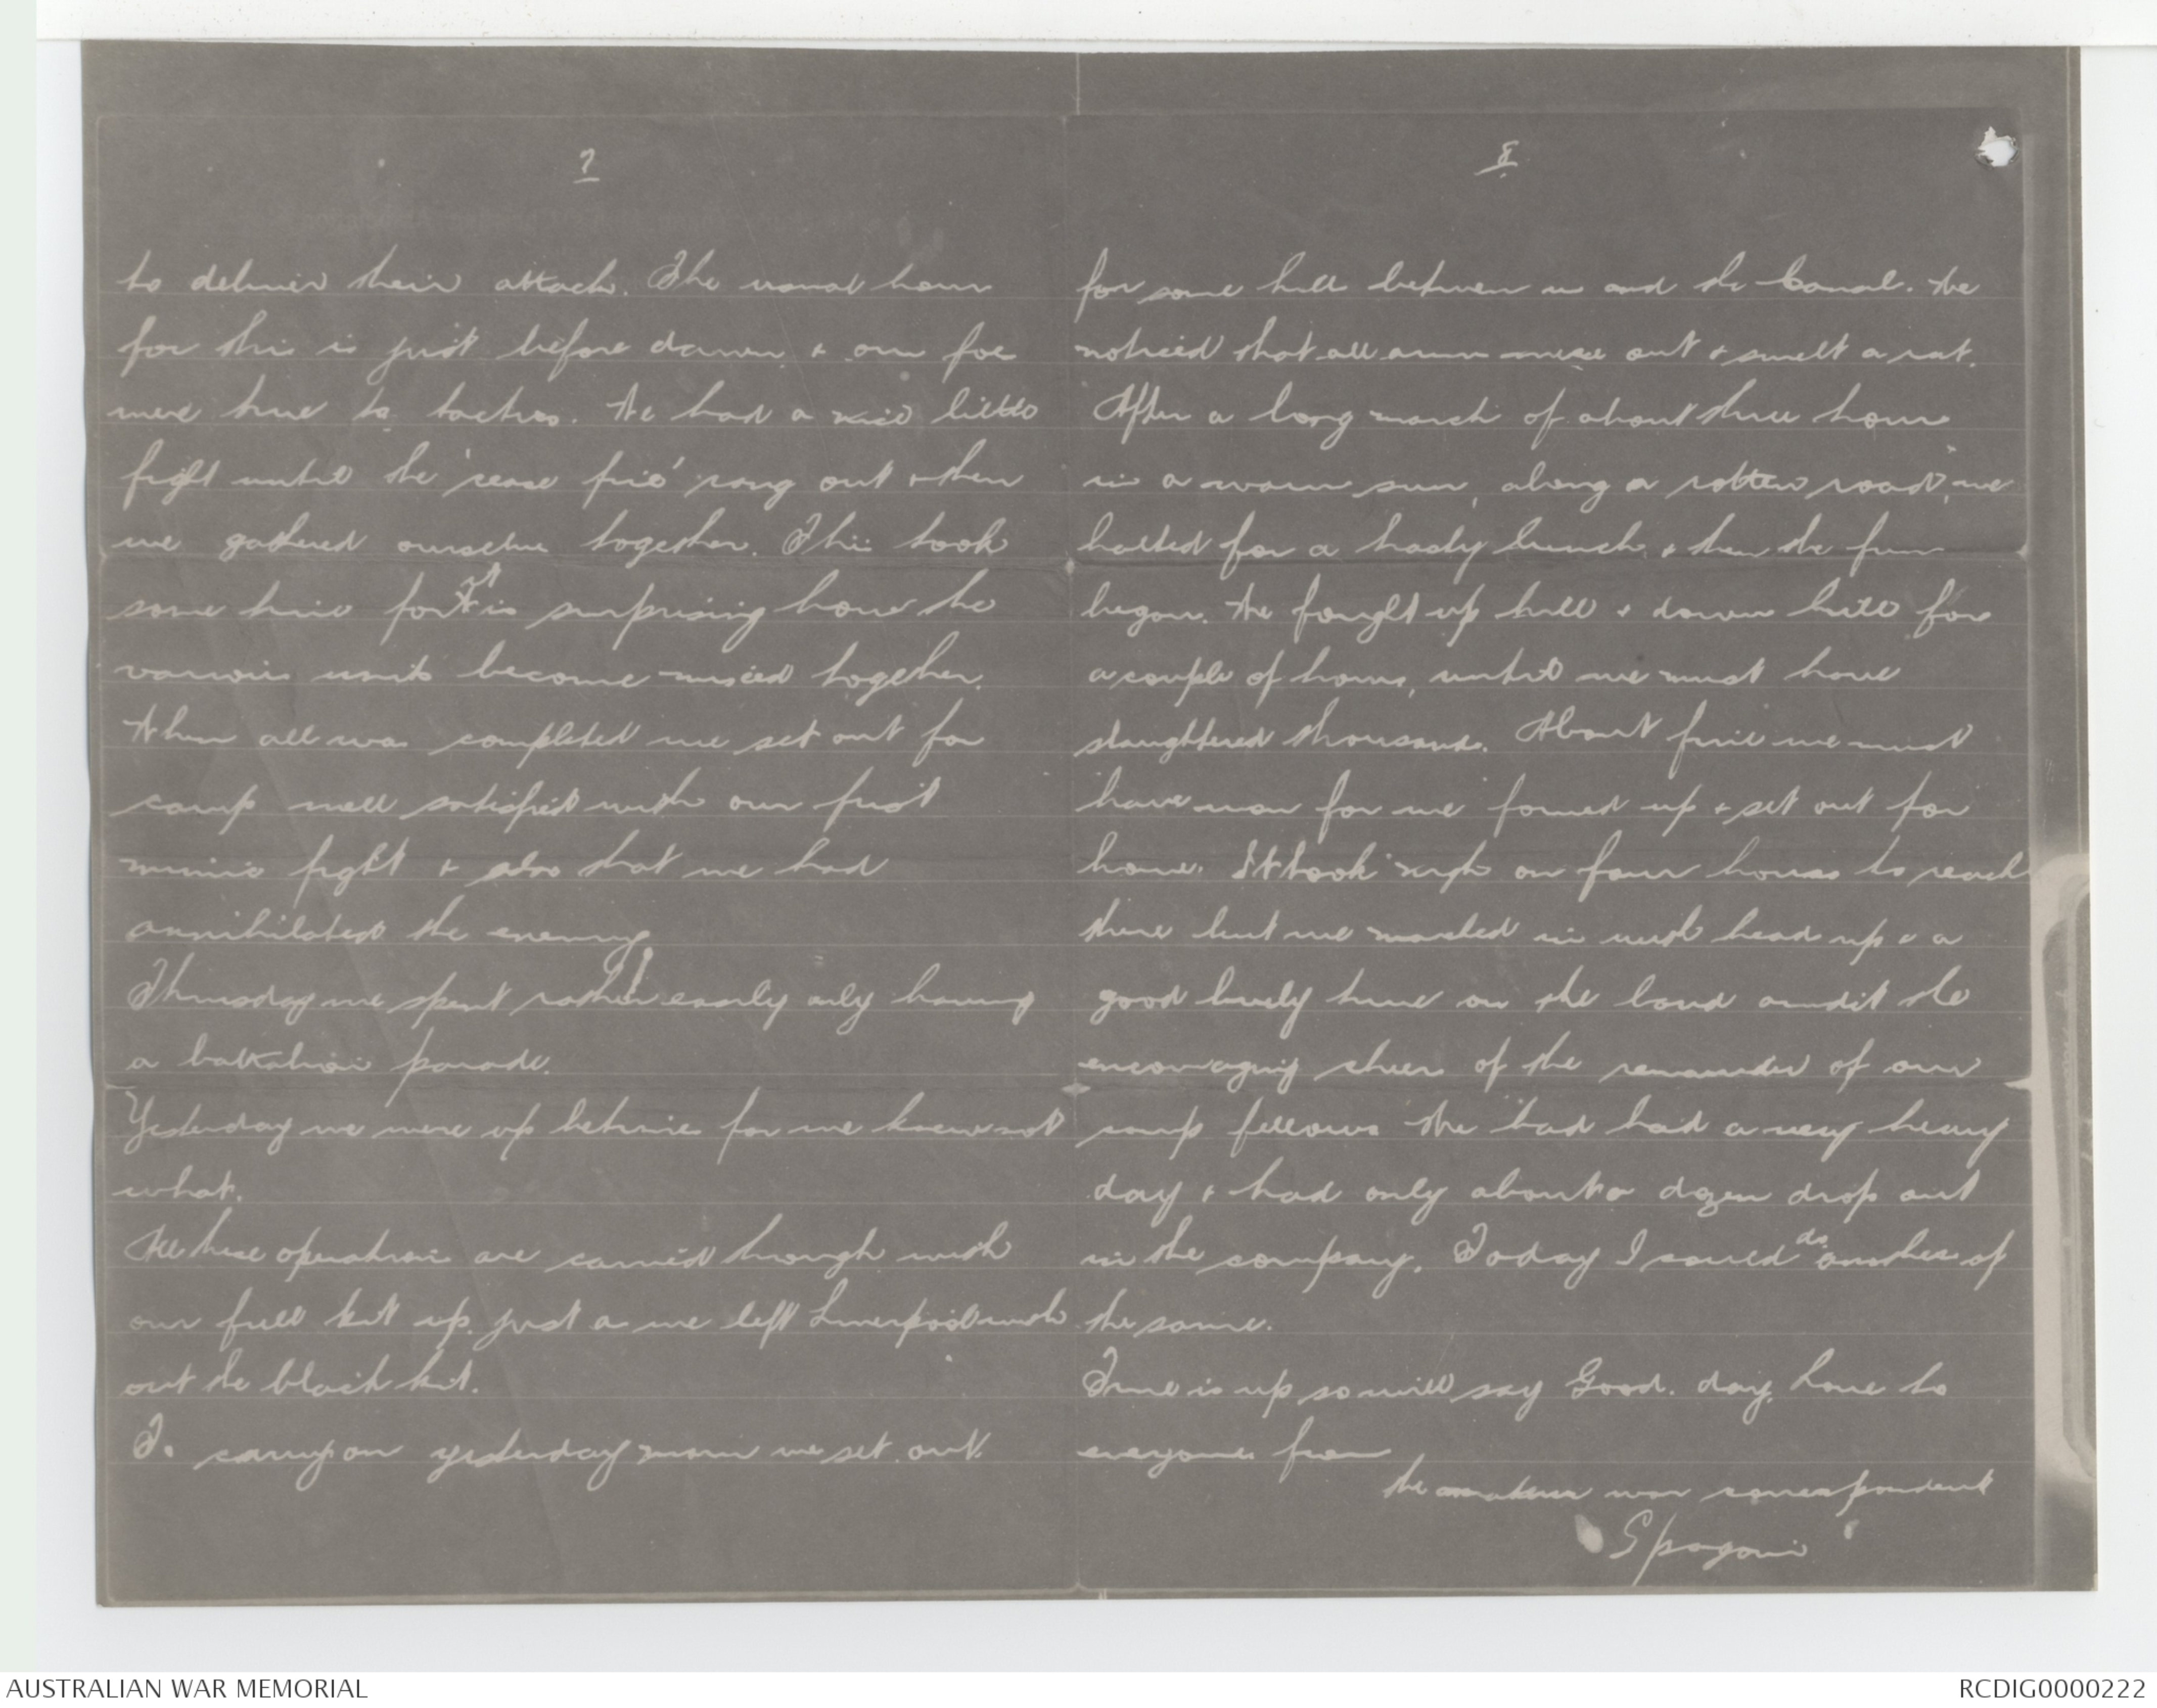 7
to deliver their attack. The usual hour
for this is just before dawn & our foe
were true to tactics. We had a nice little
fight until the 'cease fire' rang out & then
we gathered ourselves together. This took
some time for it is surprising how the
various units become mixed together.
When all was completed we set out for
camp well satisfied with our first
mimic fight & also that we had
annihilated the enemy
Thursday we spent rather easily only having
a battalion parade.
Yesterday we were up betimes for we knew not
what.
All these operations are carried through with
our full kit up just as we left Liverpool with
out the black kit.
To carry on yesterday morn we set out.
8
for some hills between us and the Canal. We
noticed that all arms were out & smelt a rat.
After a long march of about three hours
in a warm sun, along a rotten road, we
halted for a hasty lunch, & then the fun
began. We fought up hill & down hill for
a couple of hours, until we must have
slaughtered thousands. About five we must
have won for we formed up & set out for
home. It took nigh on four hours to reach
there but we marched in with head up & a
good lively tune on the band amidst the
encouraging cheers of the remainder of our
camp fellows. We had had a very heavy
day & had only about a dozen drop out
in the company. Today I could do another of
the same.
Time is up so will say Good-day, love to
everyone from
the amateur war correspondent